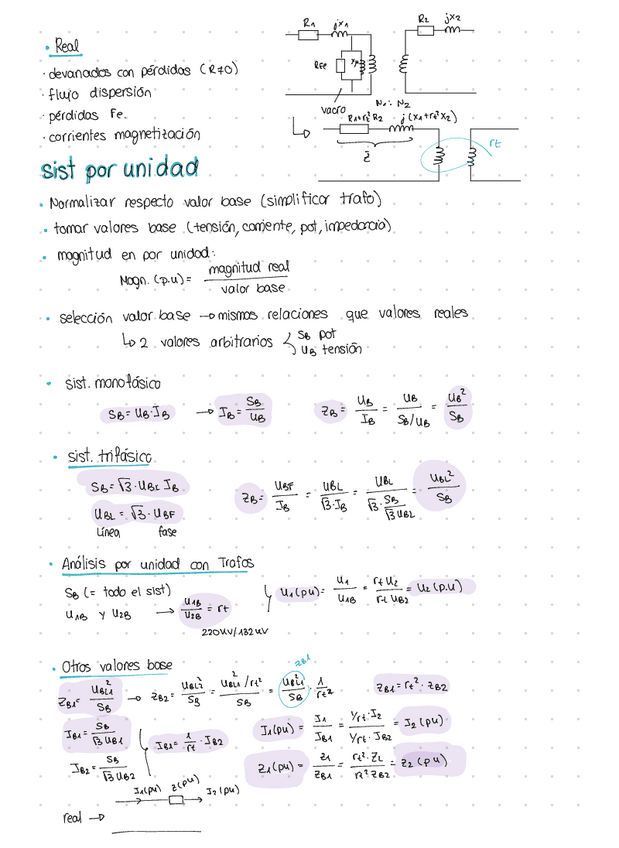 R₁ jx₁ R₂ jx₂
• Real
· devanados con pérdidas (R≠0)
RFe
· flujo dispersión
· pérdidas Fe.
vacío N₁ : N₂
· corrientes magnetización
R₁+rt²R₂ j(x₁+rt²x₂)
rt
z̄
sist por unidad
• Normalizar respecto valor base (simplificar trafo)
• tomar valores base (tensión, corriente, pot, impedancia)
• magnitud en por unidad:
Magn. (p.u) = magnitud real / valor base
• selección valor base → mismos relaciones que valores reales
↳ 2 valores arbitrarios { SB pot
UB tensión
• sist. monofásico
SB = UB·IB → IB = SB/UB ZB = UB/IB = UB/(SB/UB) = UB²/SB
• sist. trifásico
SB = √3·UBL IB
ZB = UBF/IB = UBL/(√3·IB) = UBL/(√3·SB/(√3 UBL)) = UBL²/SB
UBL = √3·UBF
Línea fase
• Análisis por unidad con Trafos
SB (= todo el sist)
U1B y U2B → U1B/U2B = rt
U₁(pu) = U₁/U1B = rt U₂/(rt UB2) = U₂(p.u)
220kV/132kV
• Otros valores base
ZB1
ZB1 = UBL1²/SB → ZB2 = UBL2²/SB = (UBL1²/rt²)/SB = UBL1²/SB · 1/rt²
ZB1 = rt²·ZB2
IB1 = SB/(√3 UB1)
IB1 = 1/rt · IB2
I₁(pu) = I₁/IB1 = (1/rt·I₂)/(1/rt·IB2) = I₂(pu)
IB2 = SB/(√3 UB2)
Z₁(pu) = Z₁/ZB1 = rt²·Z₂/(rt² ZB2) = Z₂(pu)
I₁(pu) Z(pu) I₂(pu)
real →